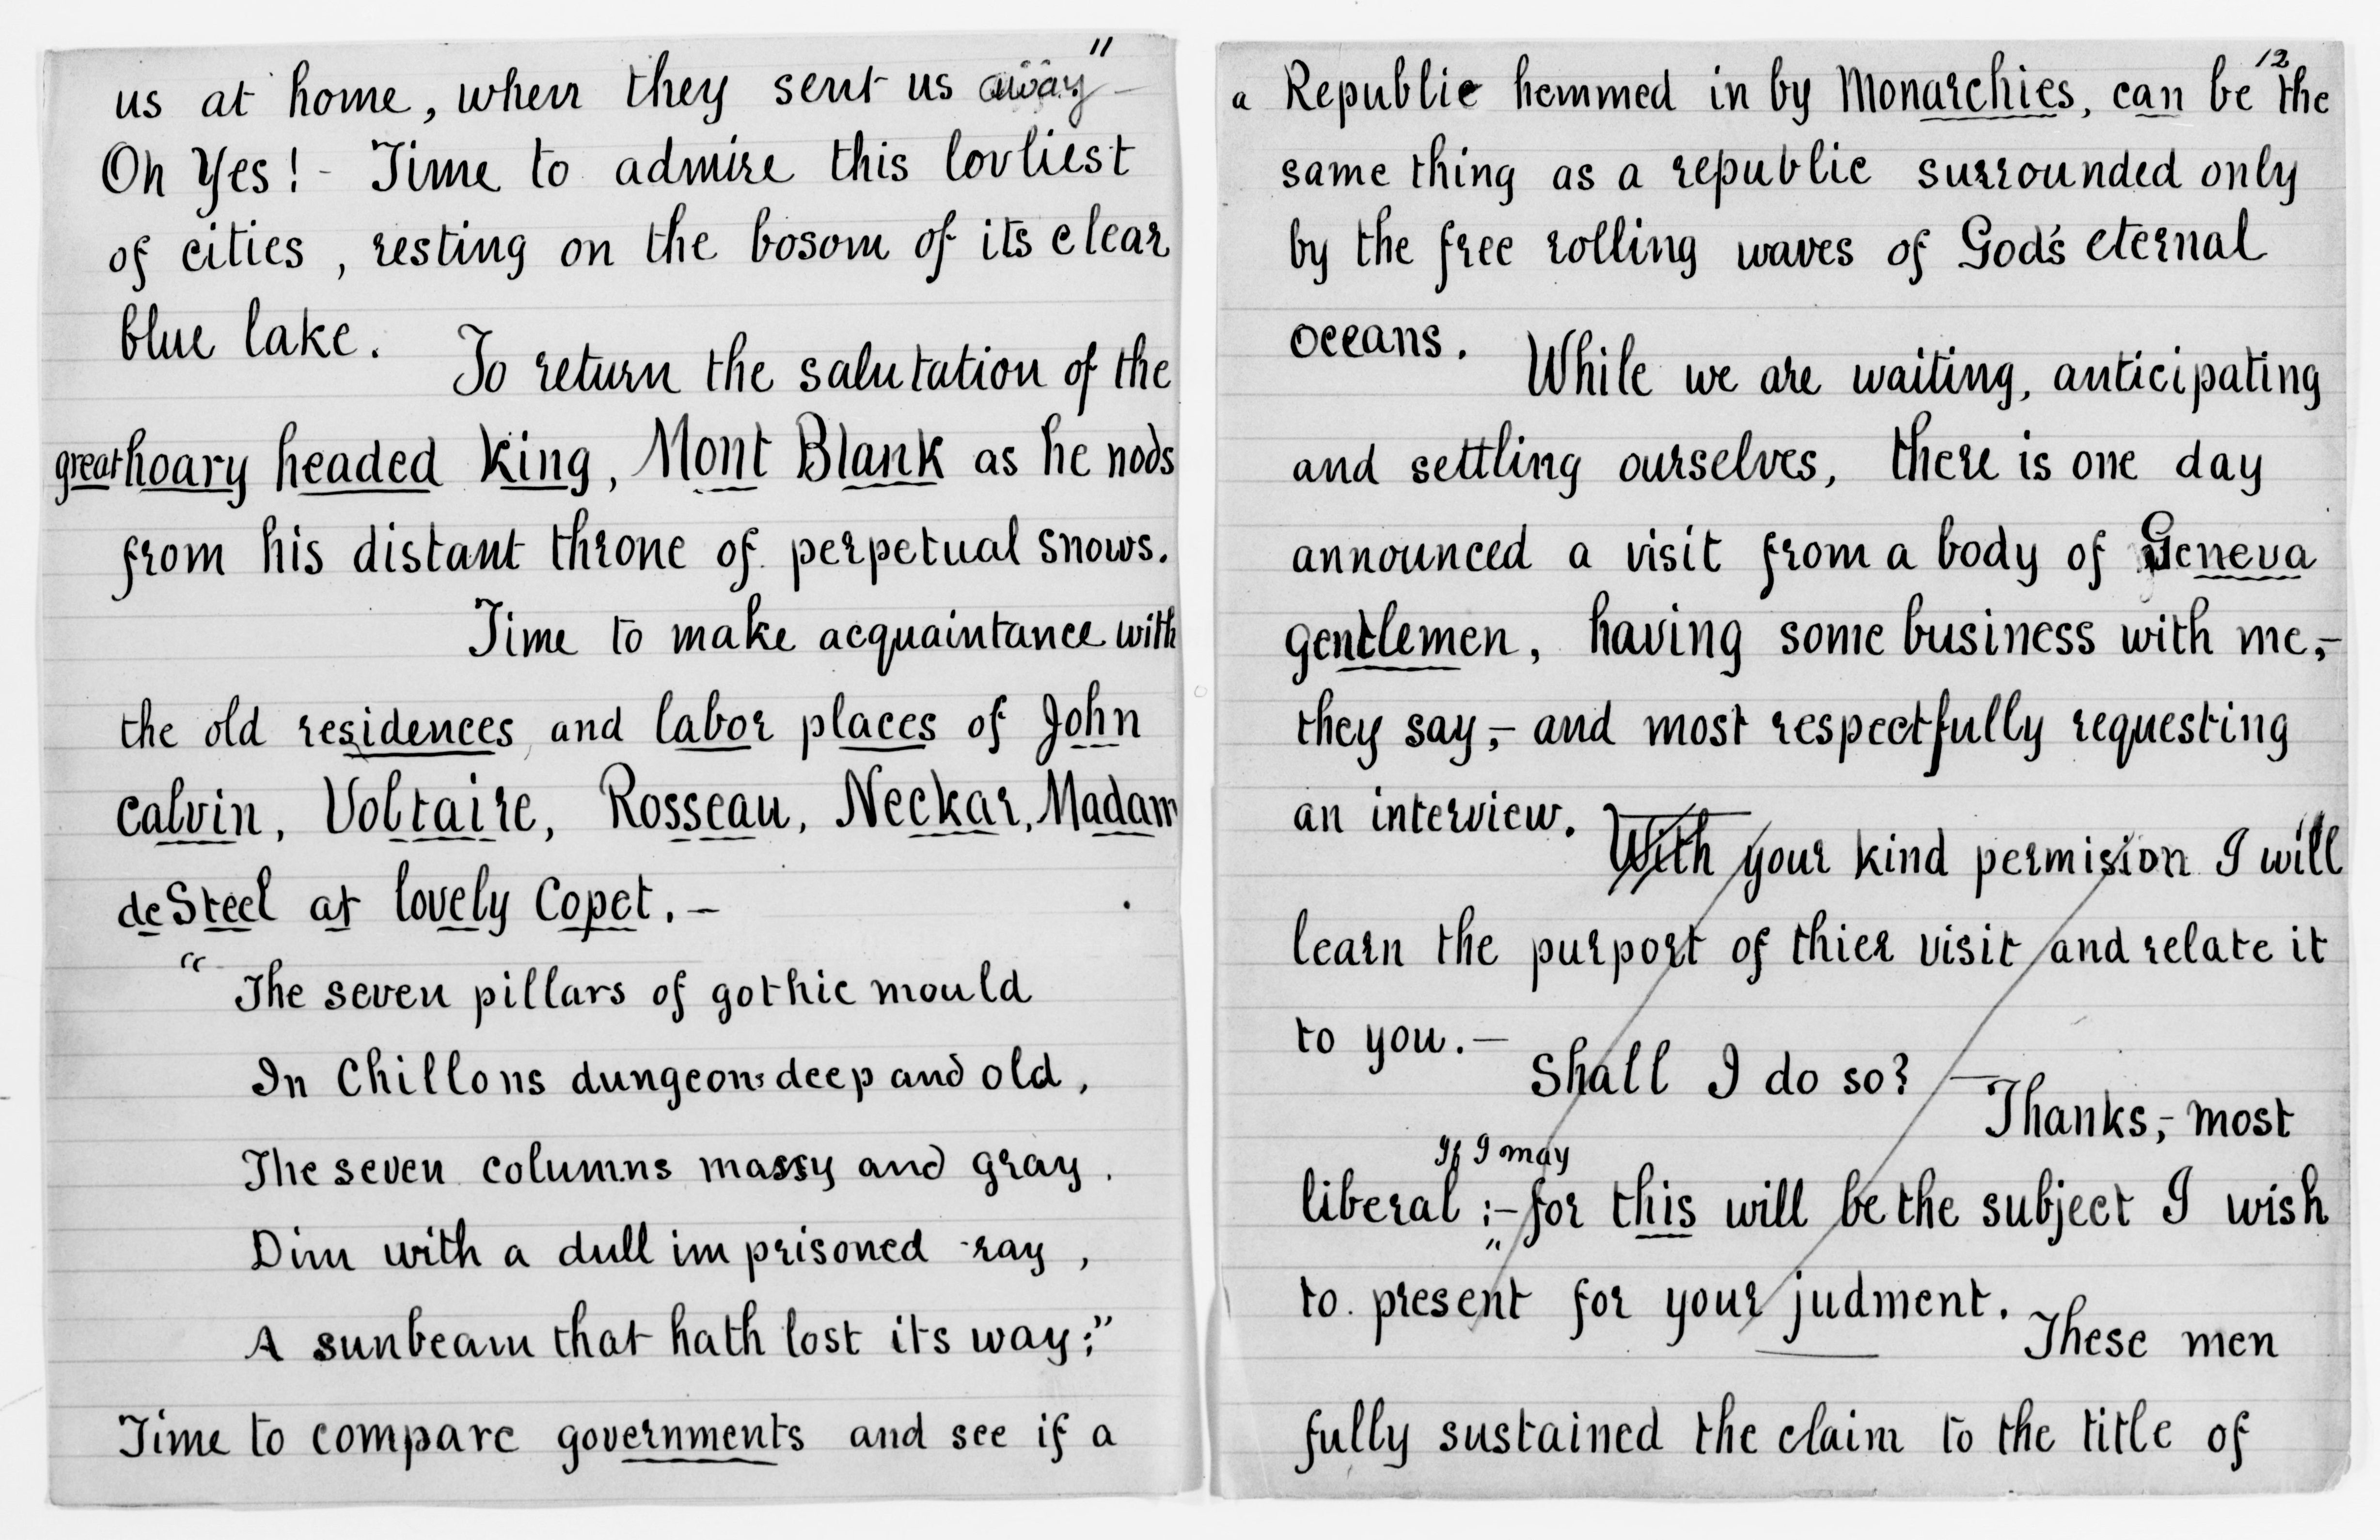 11
us at home, when they sent us away –
Oh Yes! - Time to admire this lovliest
of cities, resting on the bosom of its clear
blue lake.
To return the salutation of the
great hoary headed king, Mont Blank as he nods
from his distant throne of perpetual snows.
Time to make acquaintance with
the old residences, and labor places of John
Calvin, Voltaire, Rosseau, Neckar, Madam
deSteel at lovely Copet. –
"The seven pillars of gothic mould
In Chillons dungeons deep and old,
The seven columns massy and gray.
Dim with a dull imprisoned ray,
A sunbeam that hath lost its way;"
Time to compare governments and see if a
12
a Republic hemmed in by Monarchies, can be the
same thing as a republic surrounded only
by the free rolling waves of God's eternal
oceans.
While we are waiting, anticipating
and settling ourselves, there is one day
announced a visit from a body of Geneva
gentlemen, having some business with me,-
they say,- and most respectfully requesting
an interview.
With your kind permision I will
learn the purport of thier visit and relate it
to you. –
Shall I do so? –
Thanks,- most
If I may
liberal :- for this will be the subject I wish
to present for your judment.
These men
fully sustained the claim to the title of